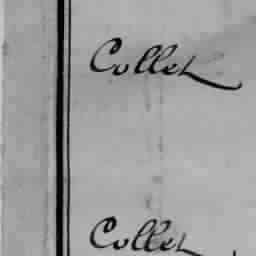 Collet
Collet